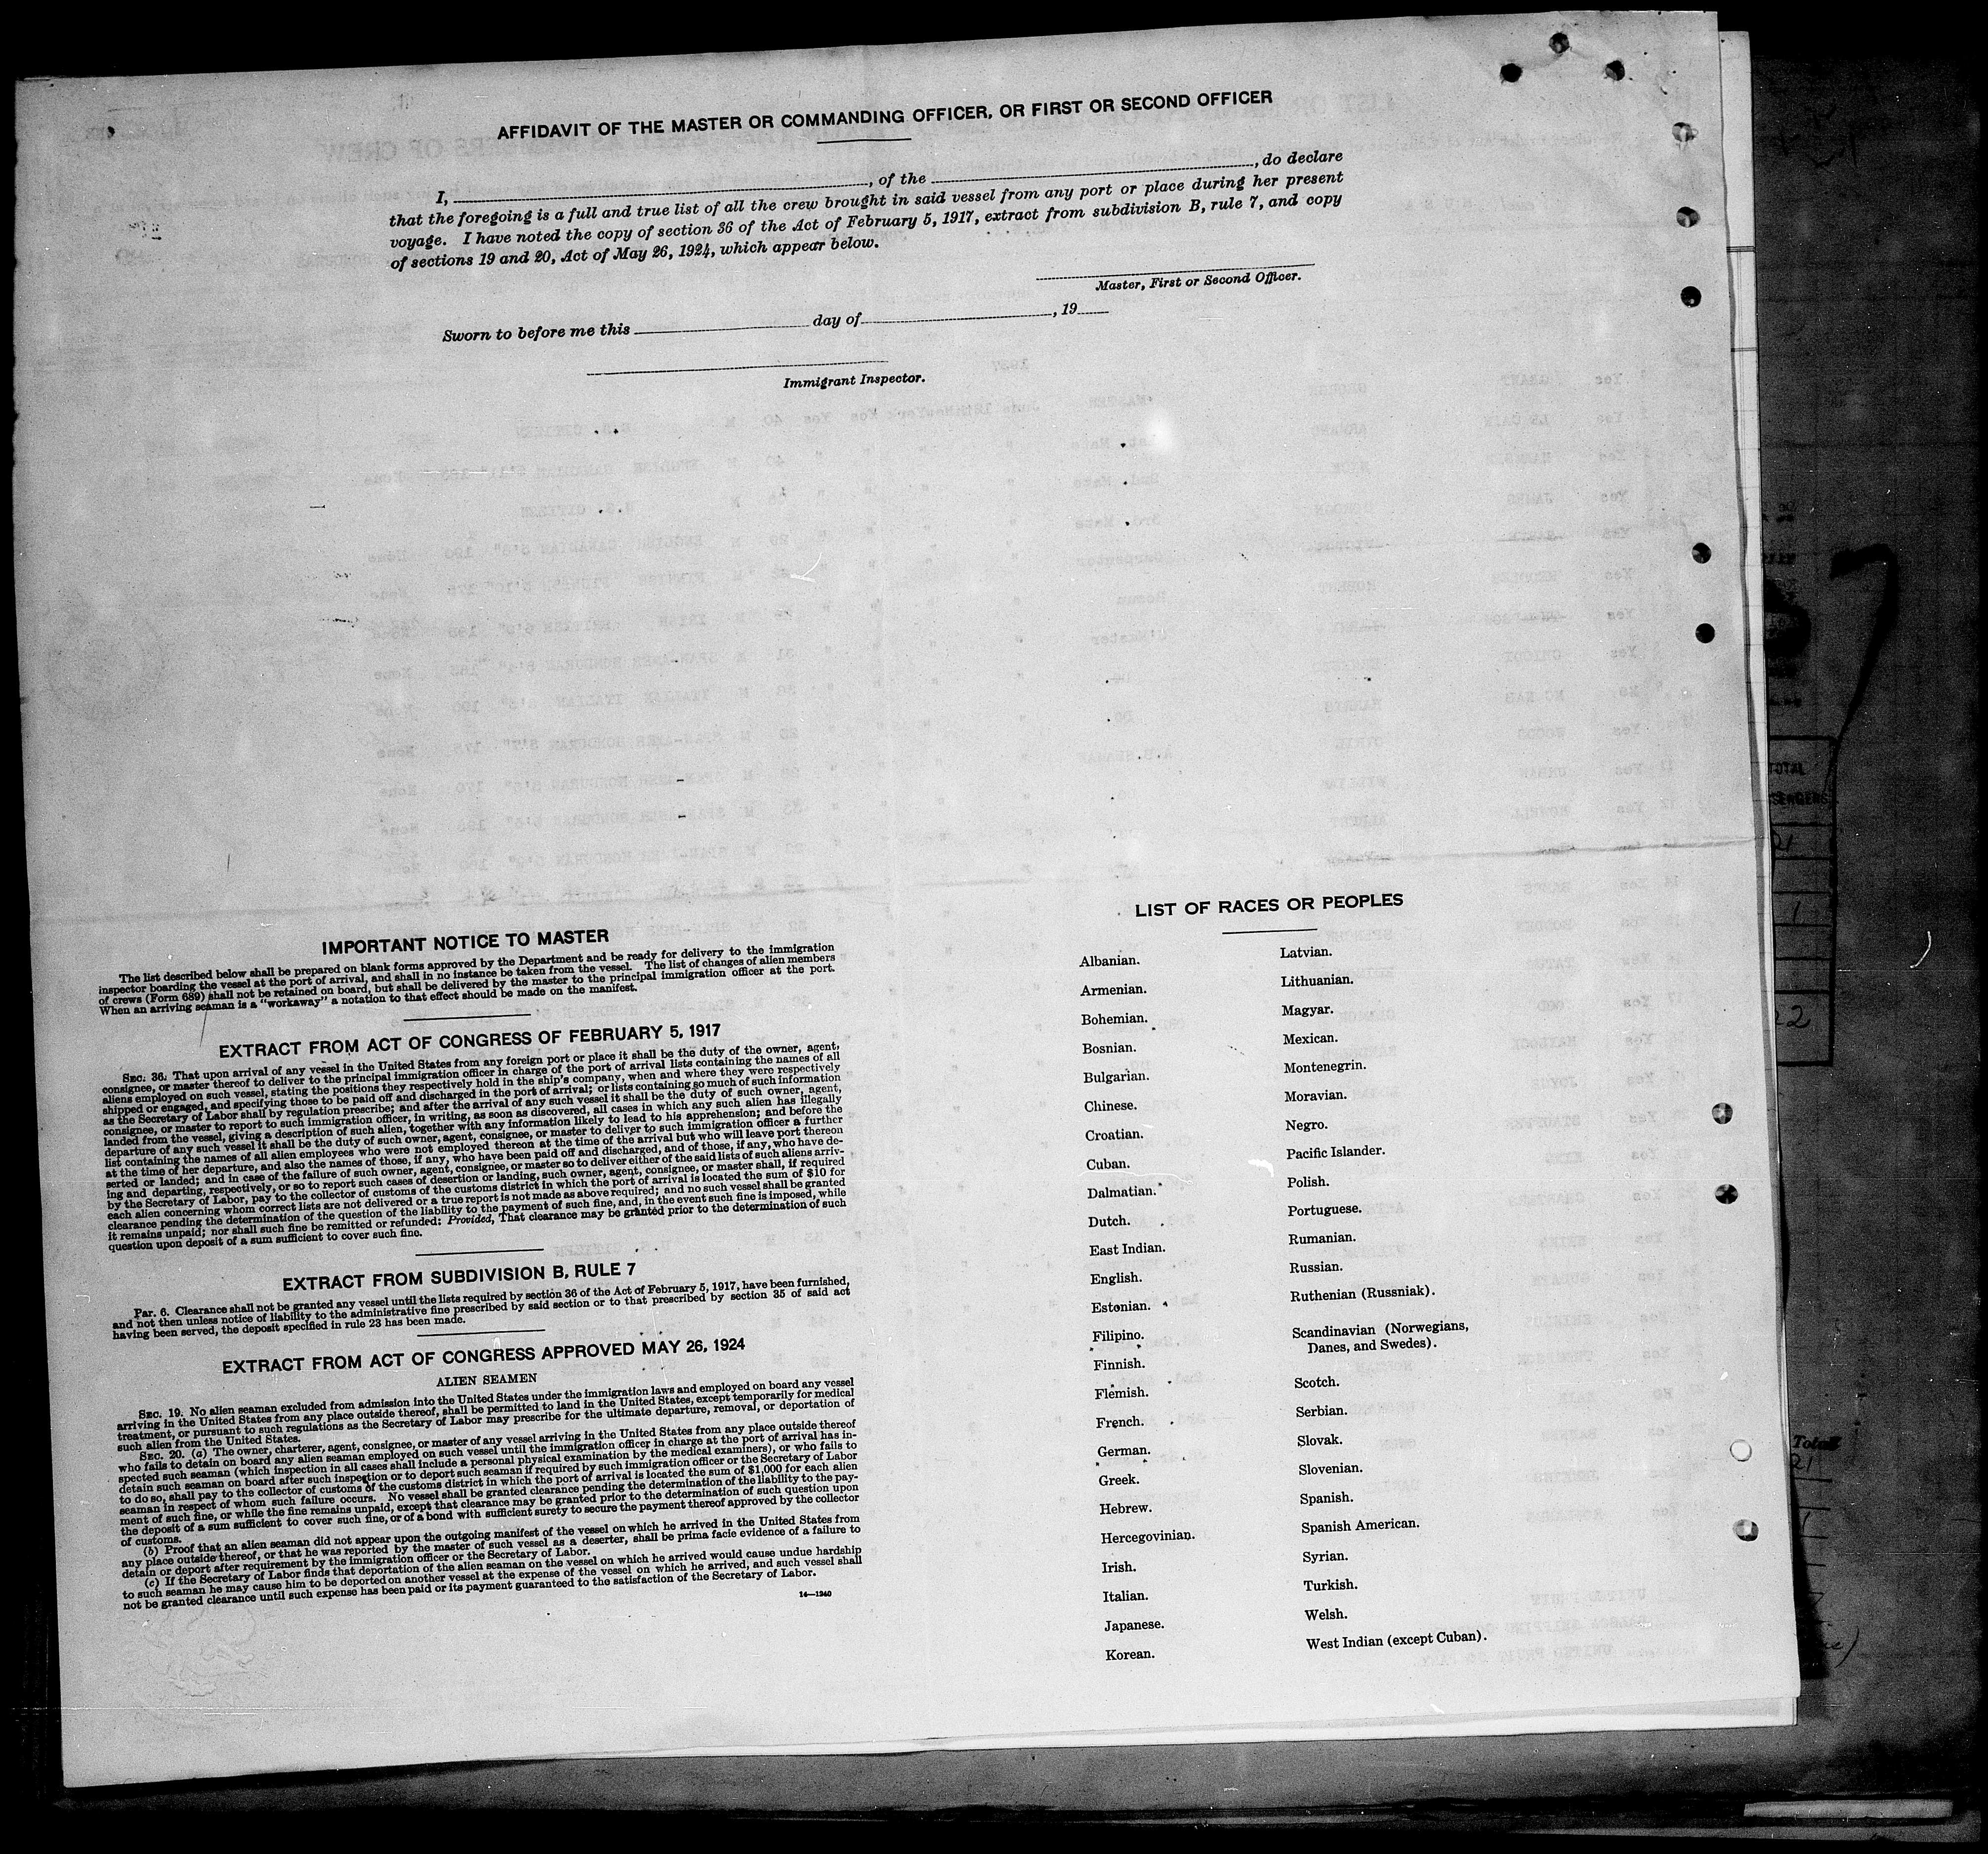 AFFIDAVIT OF THE MASTER OR COMMANDING OFFICER, OR FIRST OR SECOND OFFICER
I, , of the , do declare
that the foregoing is a full and true list of all the crew brought in said vessel from any port or place during her present
voyage. I have noted the copy of section 36 of the Act of February 5, 1917, extract from subdivision B, rule 7, and copy
of sections 19 and 20, Act of May 26, 1924, which appear below.
Master, First or Second Officer.
Sworn to before me this day of , 19
Immigrant Inspector.
IMPORTANT NOTICE TO MASTER
The list described below shall be prepared on blank forms approved by the Department and be ready for delivery to the immigration
inspector boarding the vessel at the port of arrival, and shall in no instance be taken from the vessel. The list of changes of alien members
of crews (Form 689) shall not be retained on board, but shall be delivered by the master to the principal immigration officer at the port.
When an arriving seaman is a "workaway" a notation to that effect should be made on the manifest.
EXTRACT FROM ACT OF CONGRESS OF FEBRUARY 5, 1917
SEC. 36. That upon arrival of any vessel in the United States from any foreign port or place it shall be the duty of the owner, agent,
consignee, or master thereof to deliver to the principal immigration officer in charge of the port of arrival lists containing the names of all
aliens employed on such vessel, stating the positions they respectively hold in the ship's company, when and where they were respectively
shipped or engaged, and specifying those to be paid off and discharged in the port of arrival; or lists containing so much of such information
as the Secretary of Labor shall by regulation prescribe; and after the arrival of any such vessel it shall be the duty of such owner, agent,
consignee, or master to report to such immigration officer, in writing, as soon as discovered, all cases in which any such alien has illegally
landed from the vessel, giving a description of such alien, together with any information likely to lead to his apprehension; and before the
departure of any such vessel it shall be the duty of such owner, agent, consignee, or master to deliver to such immigration officer a further
list containing the names of all alien employees who were not employed thereon at the time of the arrival but who will leave port thereon
at the time of her departure, and also the names of those, if any, who have been paid off and discharged, and of those, if any, who have de-
serted or landed; and in case of the failure of such owner, agent, consignee, or master so to deliver either of the said lists of such aliens arriv-
ing and departing, respectively, or so to report such cases of desertion or landing, such owner, agent, consignee, or master shall, if required
by the Secretary of Labor, pay to the collector of customs of the customs district in which the port of arrival is located the sum of $10 for
each alien concerning whom correct lists are not delivered or a true report is not made as above required; and no such vessel shall be granted
clearance pending the determination of the question of the liability to the payment of such fine, and, in the event such fine is imposed, while
it remains unpaid; nor shall such fine be remitted or refunded: Provided, That clearance may be granted prior to the determination of such
question upon deposit of a sum sufficient to cover such fine.
EXTRACT FROM SUBDIVISION B, RULE 7
Par. 6. Clearance shall not be granted any vessel until the lists required by section 36 of the Act of February 5, 1917, have been furnished,
and not then unless notice of liability to the administrative fine prescribed by said section or to that prescribed by section 35 of said act
having been served, the deposit specified in rule 23 has been made.
EXTRACT FROM ACT OF CONGRESS APPROVED MAY 26, 1924
ALIEN SEAMEN
SEC. 19. No alien seaman excluded from admission into the United States under the immigration laws and employed on board any vessel
arriving in the United States from any place outside thereof, shall be permitted to land in the United States, except temporarily for medical
treatment, or pursuant to such regulations as the Secretary of Labor may prescribe for the ultimate departure, removal, or deportation of
such alien from the United States.
SEC. 20. (a) The owner, charterer, agent, consignee, or master of any vessel arriving in the United States from any place outside thereof
who fails to detain on board any alien seaman employed on such vessel until the immigration officer in charge at the port of arrival has in-
spected such seaman (which inspection in all cases shall include a personal physical examination by the medical examiners), or who fails to
detain such seaman on board after such inspection or to deport such seaman if required by such immigration officer or the Secretary of Labor
to do so, shall pay to the collector of customs of the customs district in which the port of arrival is located the sum of $1,000 for each alien
seaman in respect of whom such failure occurs. No vessel shall be granted clearance pending the determination of the liability to the pay-
ment of such fine, or while the fine remains unpaid, except that clearance may be granted prior to the determination of such question upon
the deposit of a sum sufficient to cover such fine, or of a bond with sufficient surety to secure the payment thereof approved by the collector
of customs.
(b) Proof that an alien seaman did not appear upon the outgoing manifest of the vessel on which he arrived in the United States from
any place outside thereof, or that he was reported by the master of such vessel as a deserter, shall be prima facie evidence of a failure to
detain or deport after requirement by the immigration officer or the Secretary of Labor.
(c) If the Secretary of Labor finds that deportation of the alien seaman on the vessel on which he arrived would cause undue hardship
to such seaman he may cause him to be deported on another vessel at the expense of the vessel on which he arrived, and such vessel shall
not be granted clearance until such expense has been paid or its payment guaranteed to the satisfaction of the Secretary of Labor.
14—1240
LIST OF RACES OR PEOPLES
Albanian.
Armenian.
Bohemian.
Bosnian.
Bulgarian.
Chinese.
Croatian.
Cuban.
Dalmatian.
Dutch.
East Indian.
English.
Estonian.
Filipino.
Finnish.
Flemish.
French.
German.
Greek.
Hebrew.
Hercegovinian.
Irish.
Italian.
Japanese.
Korean.
Latvian.
Lithuanian.
Magyar.
Mexican.
Montenegrin.
Moravian.
Negro.
Pacific Islander.
Polish.
Portuguese.
Rumanian.
Russian.
Ruthenian (Russniak).
Scandinavian (Norwegians,
Danes, and Swedes).
Scotch.
Serbian.
Slovak.
Slovenian.
Spanish.
Spanish American.
Syrian.
Turkish.
Welsh.
West Indian (except Cuban).
TOTAL
21
1
22
Total
21